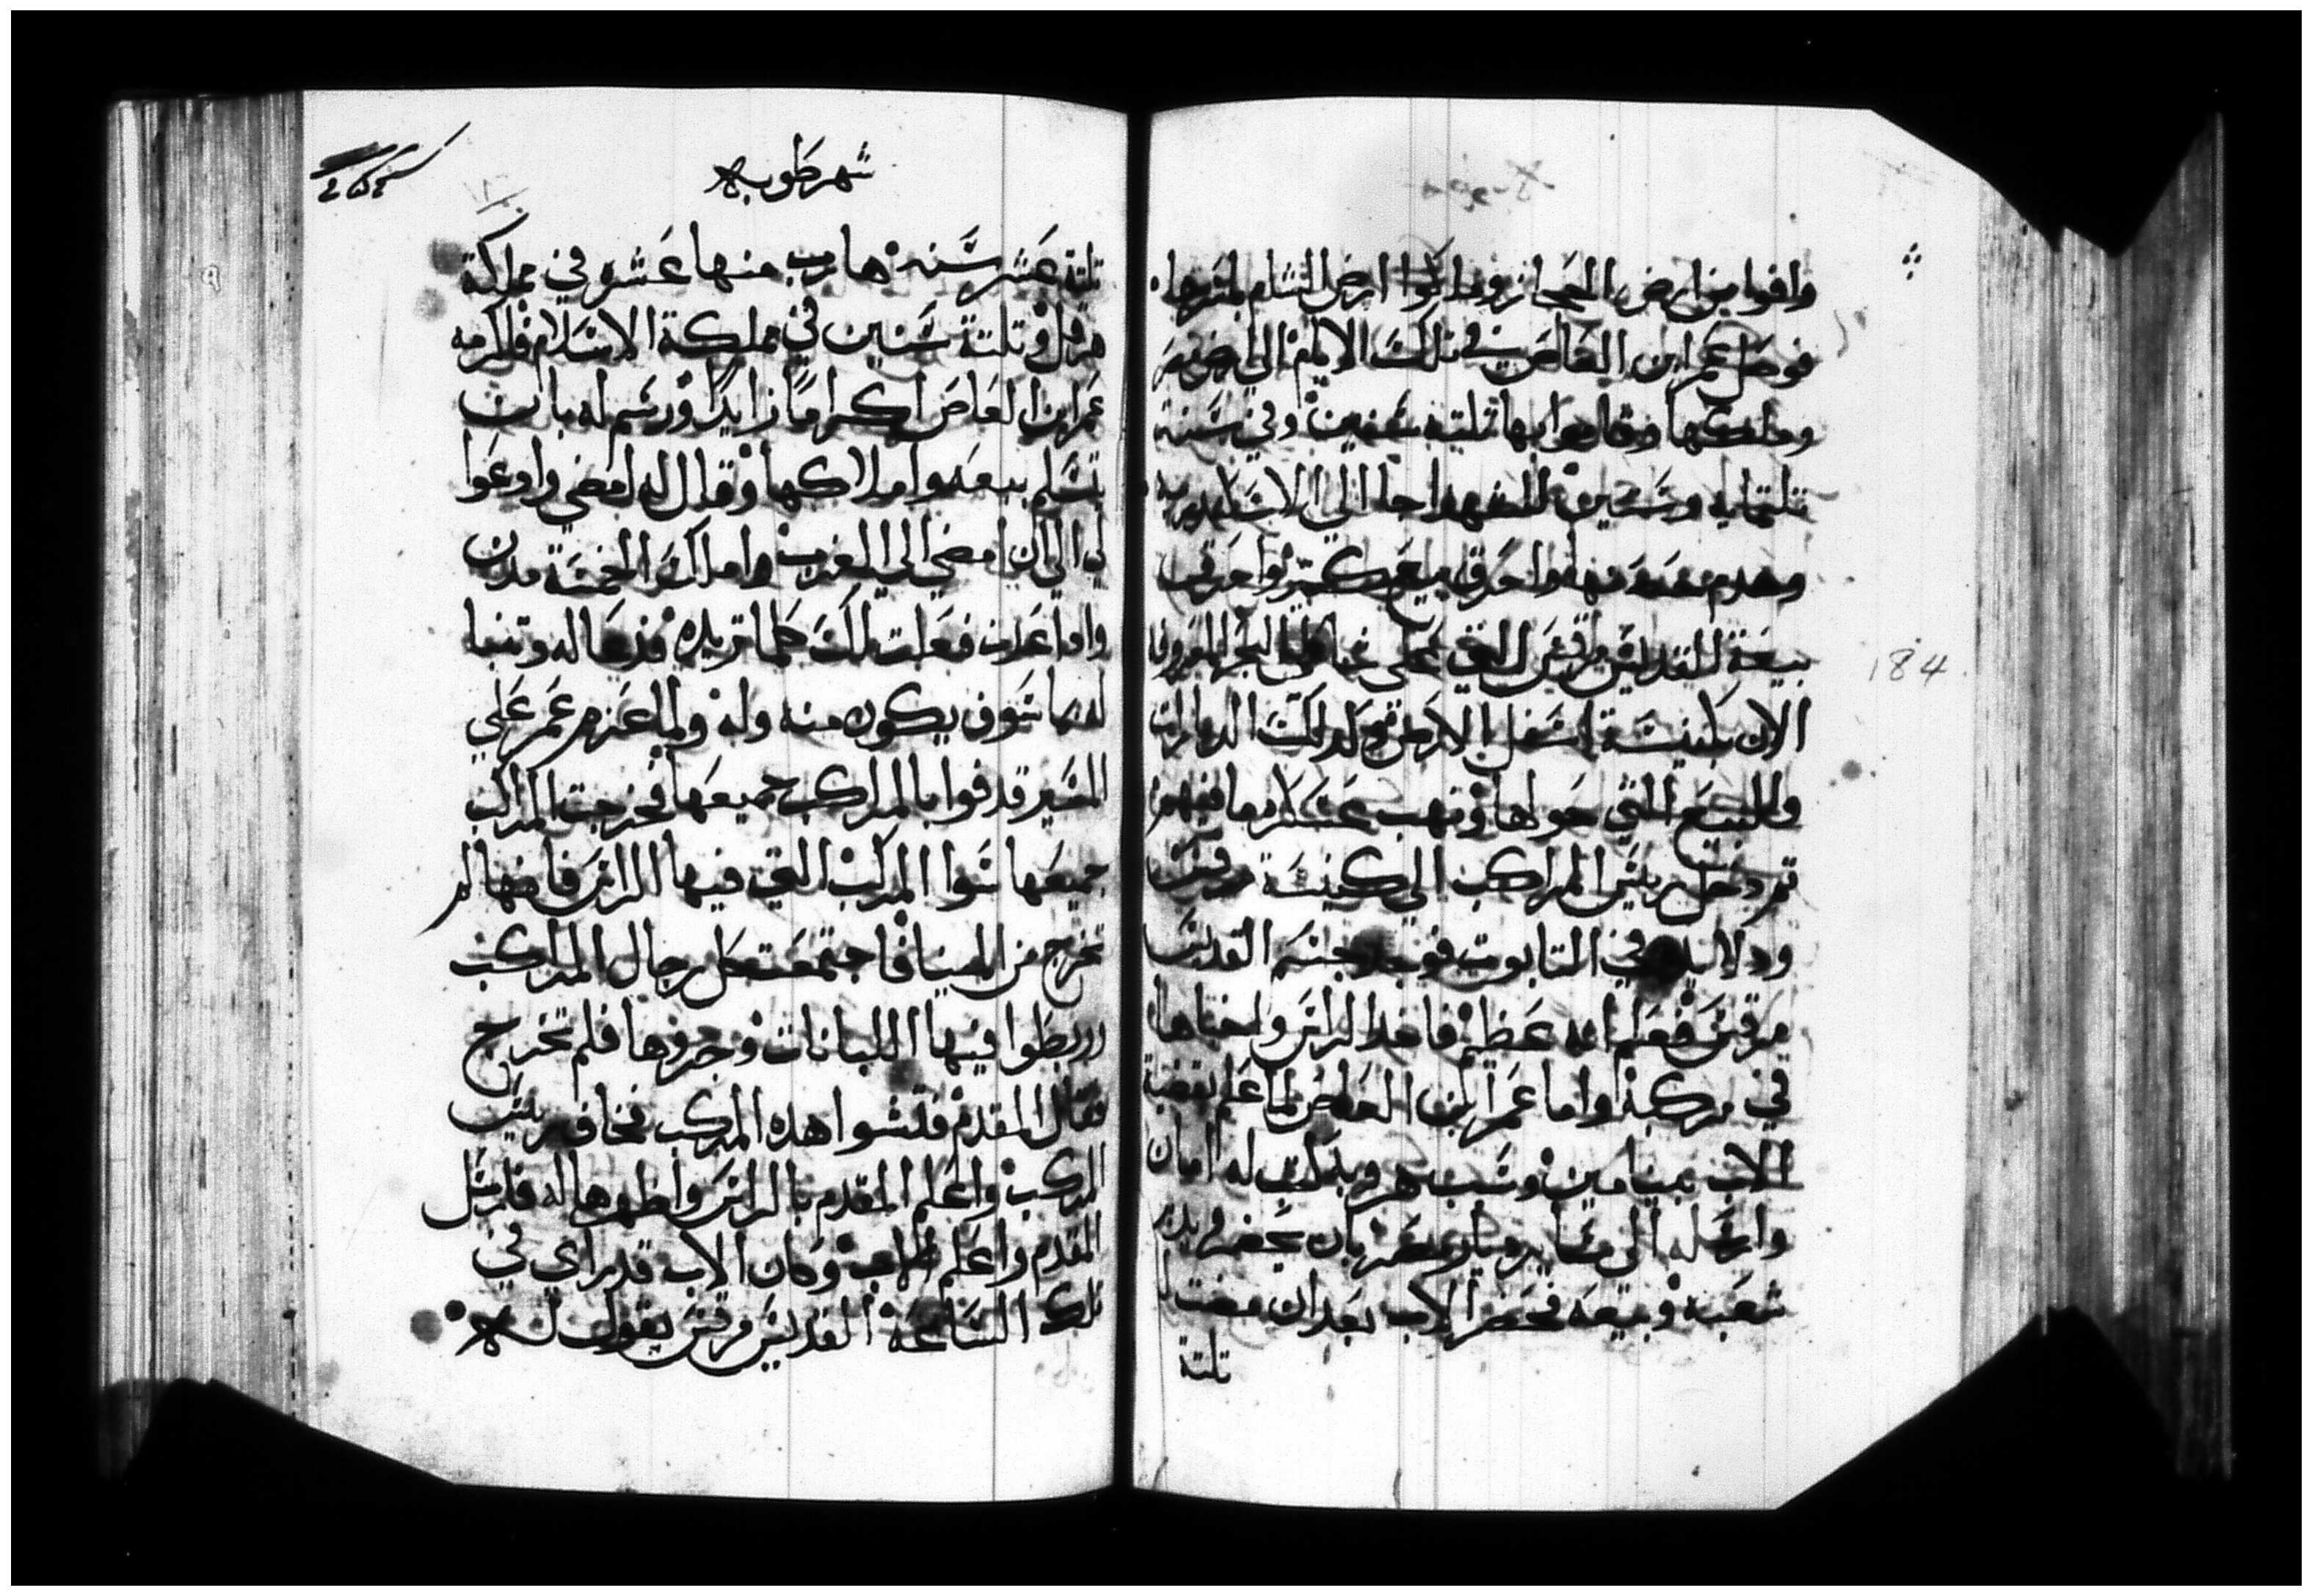 وافوا من ارض الحجاز وملكوا ارض الشام باسرها
فوصل عمر ابن العاص في تلك الايام الى ارض مصر
وملكها وقاموا بها ثلتة سنين وفي سنة
تلتمايه وستين للشهدا جا الي الاسكندريه
وهدم منها واحرق بيع كتير واحرقت
بيعة القديس مرقس التي علي شاطي البحر المعروفا
الان بكنيسة اسفل الارض وكدلك الديارات
والبيع التي حولها ونهب عسكره ما فيهم
تم دخل ريس المراكب الي كنيسة مرقس
ودلا يده في التابوت فوجد جسم القديس
مرقس فعلم انه عظيم فاخد الراس واخباها
في مركبه واما عمر ابن العاص لما علم بقضية
الاب بنيامين وسبب هروبه كتب له امان
وارسله الى ساير ديار مصر بان يحضر يدبر
شعبه وبيعه فحضر الاب بعد ان مضت
تلتة
شهر طوبه
تلتة عشر سنه هارب منها عشره في مملكة
هرقل وتلتة سنين في مملكة الاسلام فاكرمه
عمر ابن العاص اكراما زايدا ورسم له بان
يتسلم بيعه واملاكها وقال له امضي وادعوا
لي الي ان امضي الي الغرب واملك الخمسة مدن
وادا عدت فعلت لك كلما تريده فدعا له وتنبا
له بما سوف يكون منه وله ولما عزم عمر علي
المسير قدفوا بالمراكب جميعها فخرجت المراكب
جميعها سوا المركب التي فيها الراس فانها لم
تخرج من المينا فاجتمعت كل رجال المراكب
وربطوا فيها اللبانات وجروها فلم تخرج
فقال المقدم فتشوا هده المركب فخاف ريس
المركب واعلم المقدم بالراس واظهرها له فارسل
المقدم واعلم الاب وكان الاب قد راي في
تلك الساعة القديس مرقس يقول له